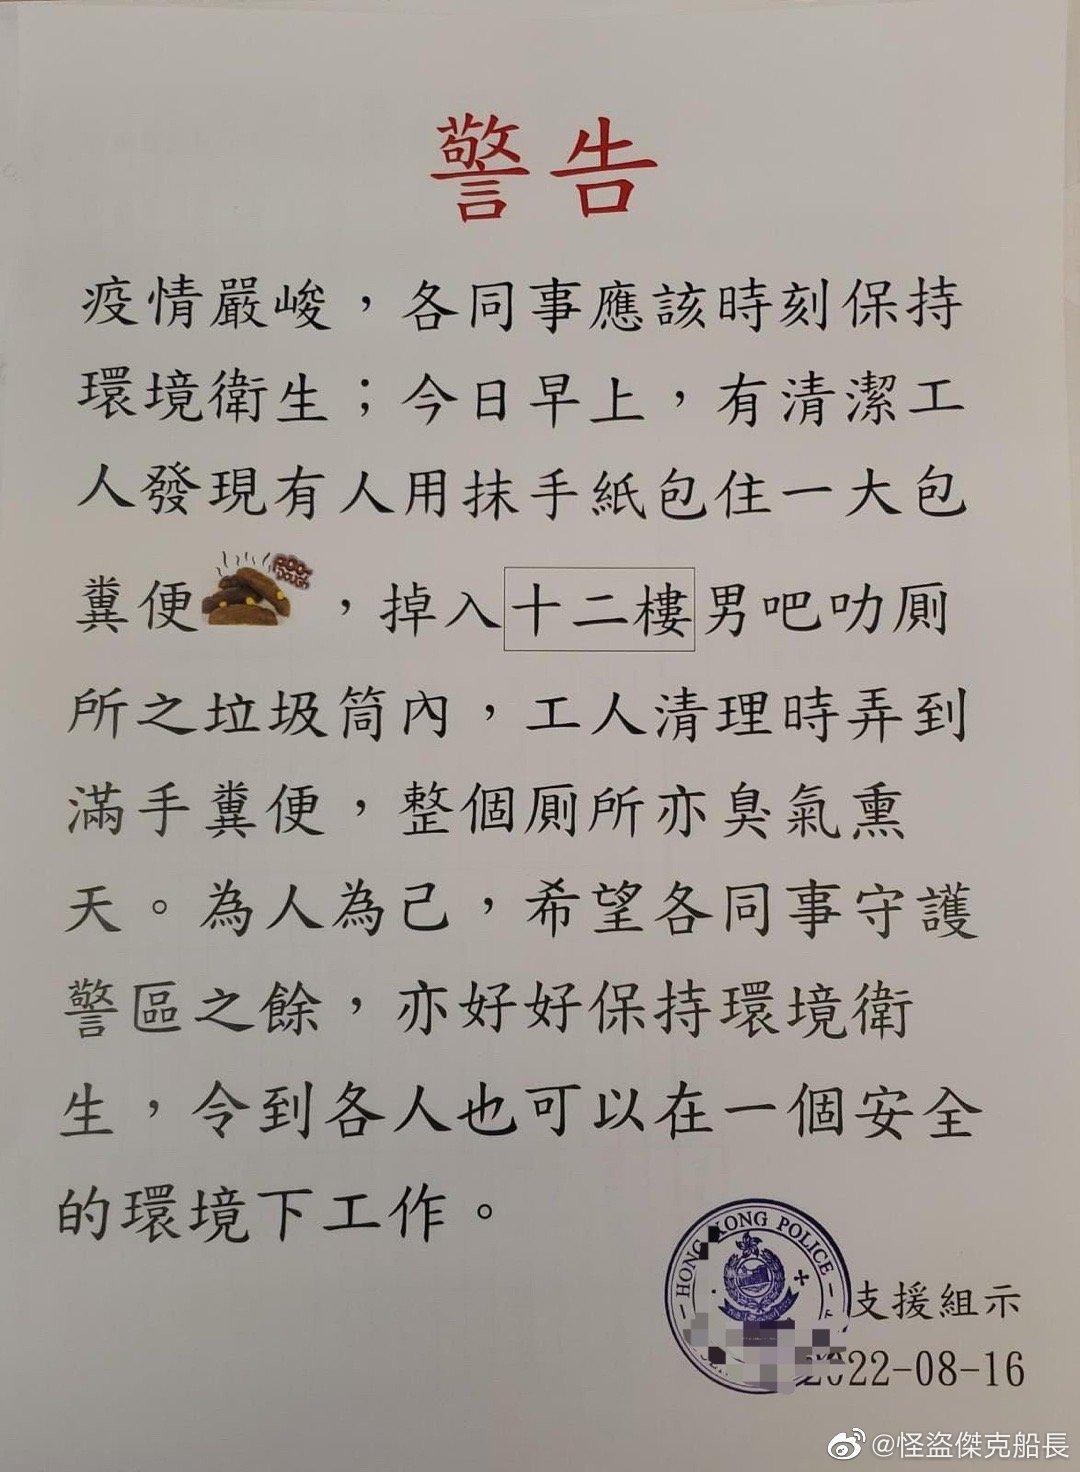 警告
疫情嚴峻，各同事應該時刻保持
環境衛生；今日早上，有清潔工
人發現有人用抹手紙包住一大包
糞便，掉入十二樓男吧叻廁
所之垃圾筒內，工人清理時弄到
滿手糞便，整個廁所亦臭氣熏
天。為人為己，希望各同事守護
警區之餘，亦好好保持環境衛
生，令到各人也可以在一個安全
的環境下工作。
HONG KONG POLICE
支援組示
2022-08-16
@怪盜傑克船長